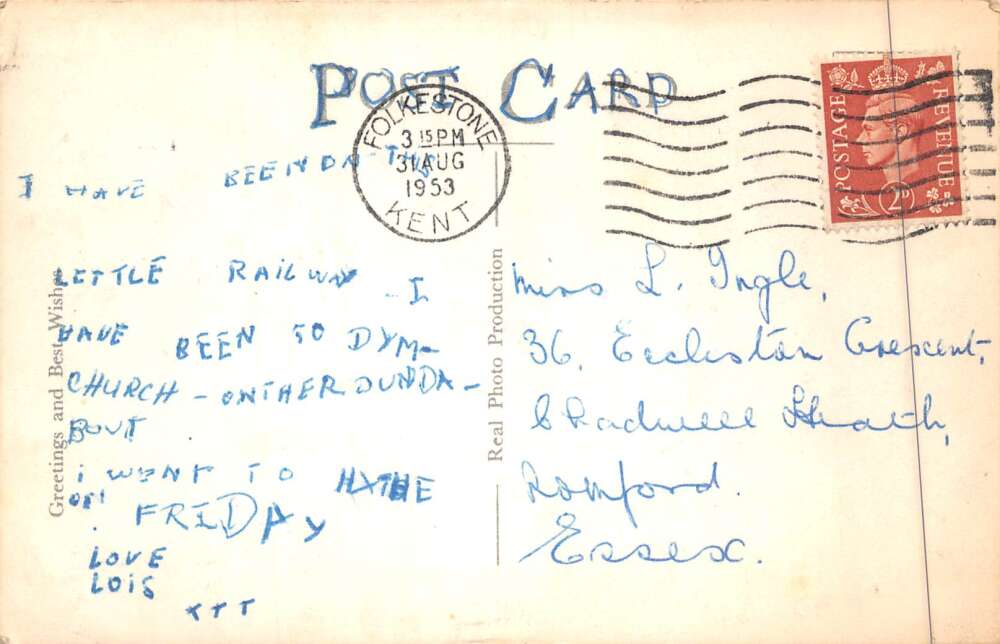 POST CARD
FOLKESTONE
3 15 PM
31 AUG
1953
KENT
POSTAGE REVENUE
2D
I HAVE BEEN ON THIS
LETTLE RAILWAY I
HAVE BEEN TO DYM-
CHURCH - ONTHEROUNDA-
BOUT
i WENT TO HYTHE
ON
FRIDAY
LOVE
LOIS
xTT
Greetings and Best Wishes
Real Photo Production
Miss L. Ingle,
36, Eccleston Crescent,
Chadwell Heath,
Romford.
Essex.